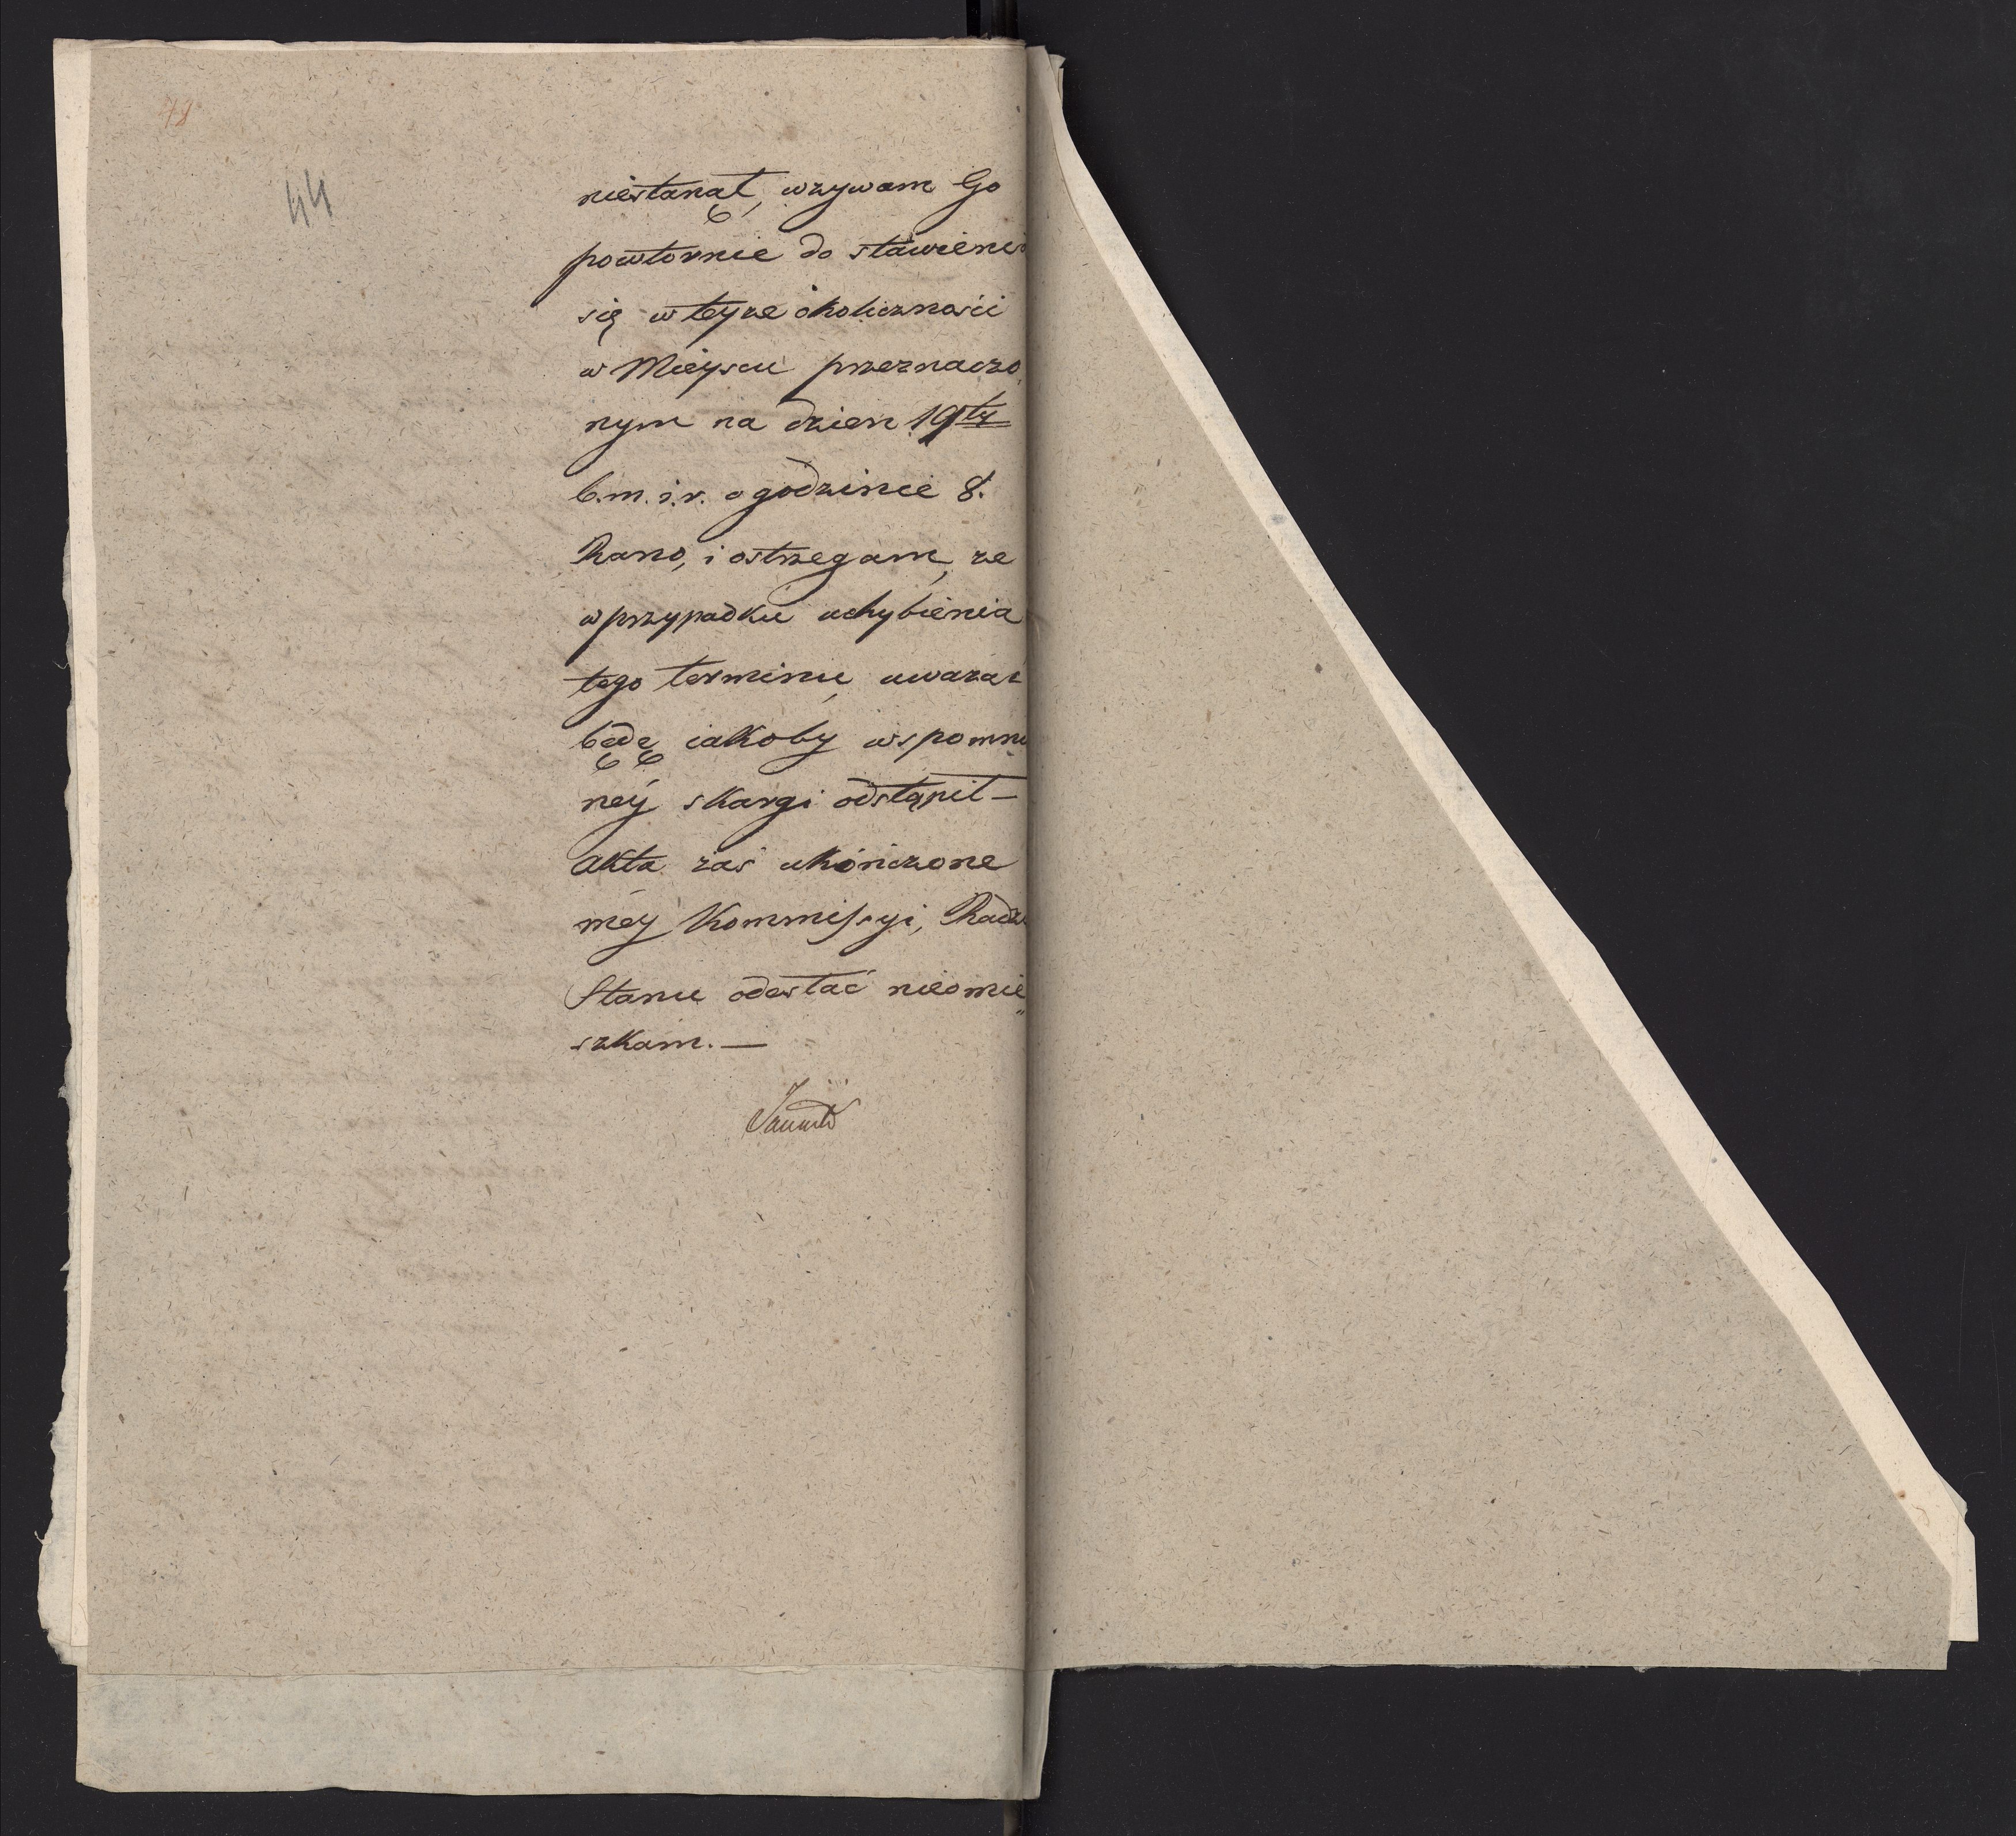 78
44
niestanął, wzywam Go
powtornie do stawieni
się w teyże okoliczności
w Mieyscu przeznaczo
nym na dzien 19ty
b.m. i.r. o godzinie 8.
Rano, i ostrzegam, że
w przypadku uchybienia
tego terminu, uważać
będę iakoby wspomni
néy skargi odstąpił —
Akta zaś ukończone
méy Kommissyi, Radzie
Stanu odesłać nieomie
szkam. —